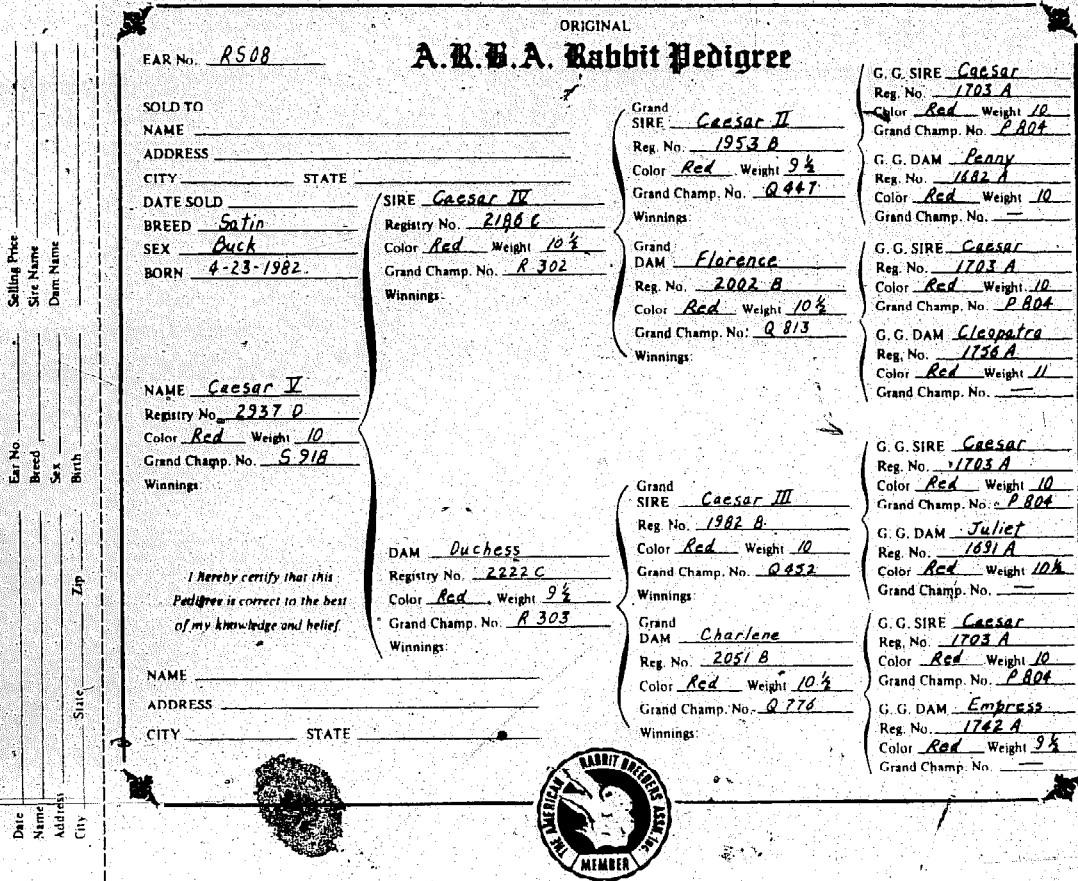 ORIGINAL
A.R.B.A. Rabbit Pedigree
EAR No. RS08
SOLD TO
NAME
ADDRESS
CITY STATE
DATE SOLD
BREED Satin
SEX Buck
BORN 4-23-1982.
NAME Caesar V
Registry No. 2937 D
Color Red Weight 10
Grand Champ. No. S 918
Winnings:
I hereby certify that this
Pedigree is correct to the best
of my knowledge and belief.
NAME
ADDRESS
CITY STATE
SIRE Caesar IV
Registry No. 2186 C
Color Red Weight 10 ½
Grand Champ. No. R 302
Winnings:
DAM Duchess
Registry No. 2222 C
Color Red Weight 9 ½
Grand Champ. No. R 303
Winnings:
Grand
SIRE Caesar II
Reg. No. 1953 B
Color Red Weight 9 ½
Grand Champ. No. Q 447
Winnings:
Grand
DAM Florence
Reg. No. 2002 B
Color Red Weight 10 ½
Grand Champ. No: Q 813
Winnings:
Grand
SIRE Caesar III
Reg. No. 1982 B
Color Red Weight 10
Grand Champ. No. Q 452
Winnings:
Grand
DAM Charlene
Reg. No. 2051 B
Color Red Weight 10 ½
Grand Champ. No. Q 776
Winnings:
G. G. SIRE Caesar
Reg. No. 1703 A
Color Red Weight 10
Grand Champ. No. P 804
G. G. DAM Penny
Reg. No. 1682 A
Color Red Weight 10
Grand Champ. No. —
G. G. SIRE Caesar
Reg. No. 1703 A
Color Red Weight 10
Grand Champ. No. P 804
G. G. DAM Cleopatra
Reg. No. 1756 A
Color Red Weight 11
Grand Champ. No. —
G. G. SIRE Caesar
Reg. No. 1703 A
Color Red Weight 10
Grand Champ. No. P 804
G. G. DAM Juliet
Reg. No. 1691 A
Color Red Weight 10½
Grand Champ. No. —
G. G. SIRE Caesar
Reg. No. 1703 A
Color Red Weight 10
Grand Champ. No. P 804
G. G. DAM Empress
Reg. No. 1742 A
Color Red Weight 9 ½
Grand Champ. No. —
THE AMERICAN RABBIT BREEDERS ASSN. INC.
MEMBER
Ear No. Selling Price
Breed Sire Name
Sex Dam Name
Birth
Date
Name
Address
City State Zip